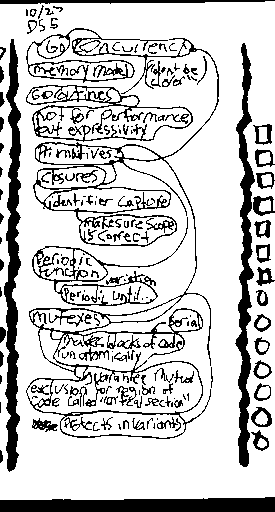 10/27
DS5
Go Concurrency
memory model
"don't be
clever"
Goroutines
not for performance,
but expressivity
Primitives
closures
identifier capture
make sure scope
is correct
Periodic
function
variation
Periodic until...
mutexes
Serial
makes blocks of code
run atomically
guarantee mutual
exclusion for region of
code called "critical section"
Protects invariants